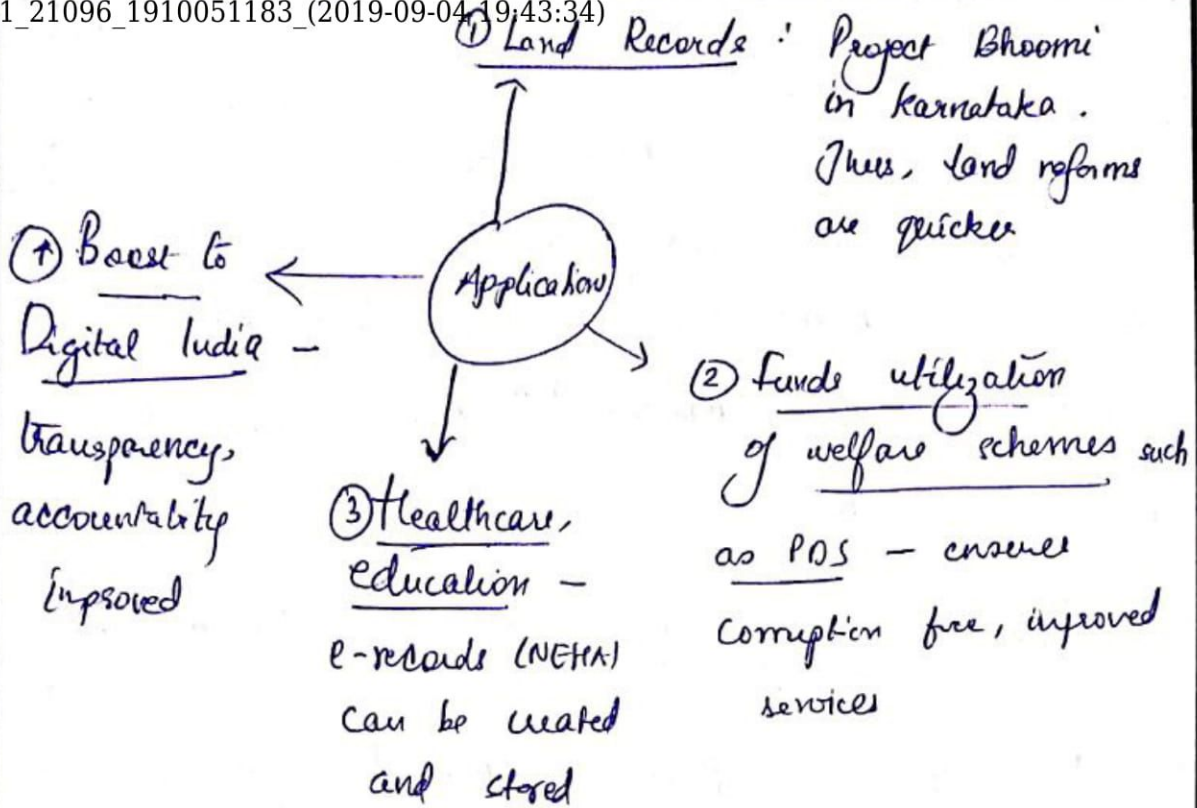 1_21096_1910051183_(2019-09-04 19:43:34)
① Land Records : Project Bhoomi
in Karnataka.
Thus, land reforms
are quicker
Application
② Funds utilization
of welfare schemes such
as PDS – ensures
corruption free, improved
services
③ Healthcare,
education –
e-records (NEHA)
can be created
and stored
④ Boost to
Digital India –
transparency,
accountability
improved